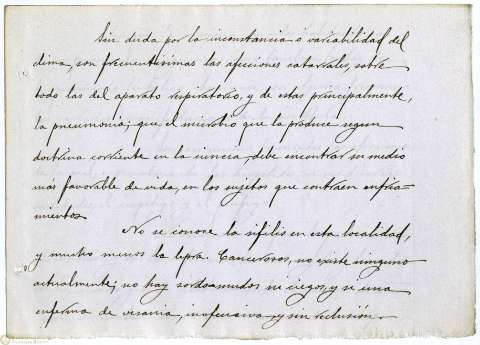 Sin duda por la inconstancia ó variabilidad del
clima, son frecuentisimas las afecciones catarrales, sobre
todo las del aparato respiratorio, y de estas principalmente,
la pneumonia; que el microbio que la produce segun
doctrina corriente en la ciencia, debe encontrar su medio
más favorable de vida, en los sujetos que contraen enfria-
mientos.
No se conoce la sifilis en esta localidad,
y mucho menos la lepra. Cancerosos, no existe ninguno
actualmente; no hay sordomudos ni ciegos, y si una
enferma de vesania, inofensiva y sin reclusión.